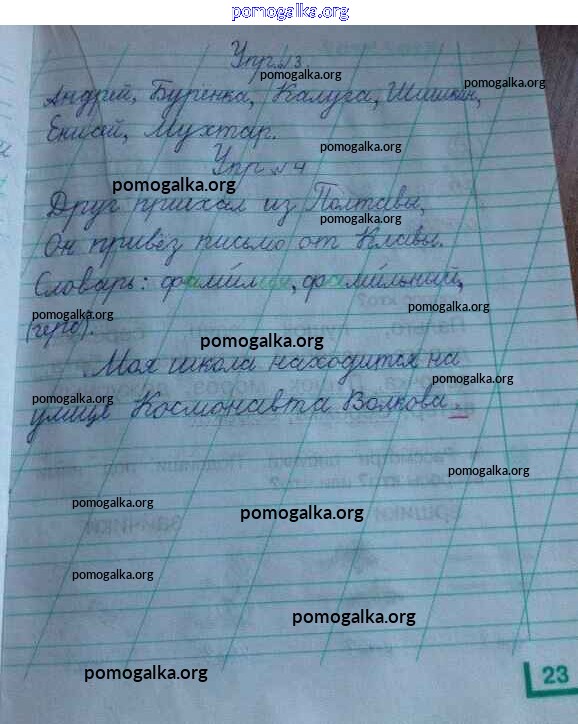 pomogalka.org
Упр. №3
Андрей, Бурёнка, Калуга, Шишкин,
Енисей, Мухтар.
Упр №4
Друг приехал из Полтавы,
Он привёз письмо от Клавы.
Словарь: фамилия, фамильный,
(герб).
Моя школа находится на
улице Космонавта Волкова.
23
pomogalka.org
pomogalka.org
pomogalka.org
pomogalka.org
pomogalka.org
pomogalka.org
pomogalka.org
pomogalka.org
pomogalka.org
pomogalka.org
pomogalka.org
pomogalka.org
pomogalka.org
pomogalka.org
pomogalka.org
pomogalka.org